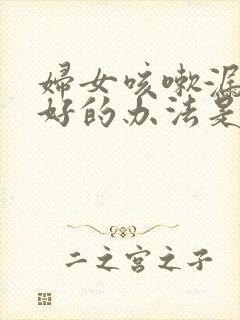 婦女咳嗽漏
好的办法是
二之宫之子